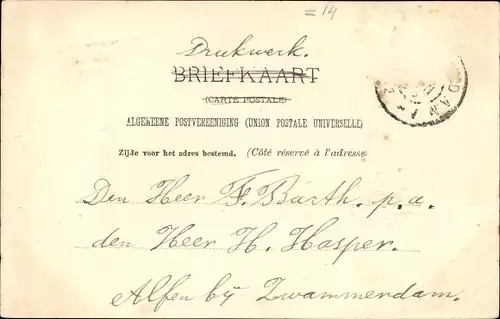 = 14
Drukwerk.
BRIEFKAART
(CARTE POSTALE)
ALGEMEENE POSTVEREENIGING (UNION POSTALE UNIVERSELLE)
Zijde voor het adres bestemd. (Côté réservé à l'adresse
Den Heer F. Barth. p.a.
den Heer H. Hasper.
Alfen bij Zwammerdam.